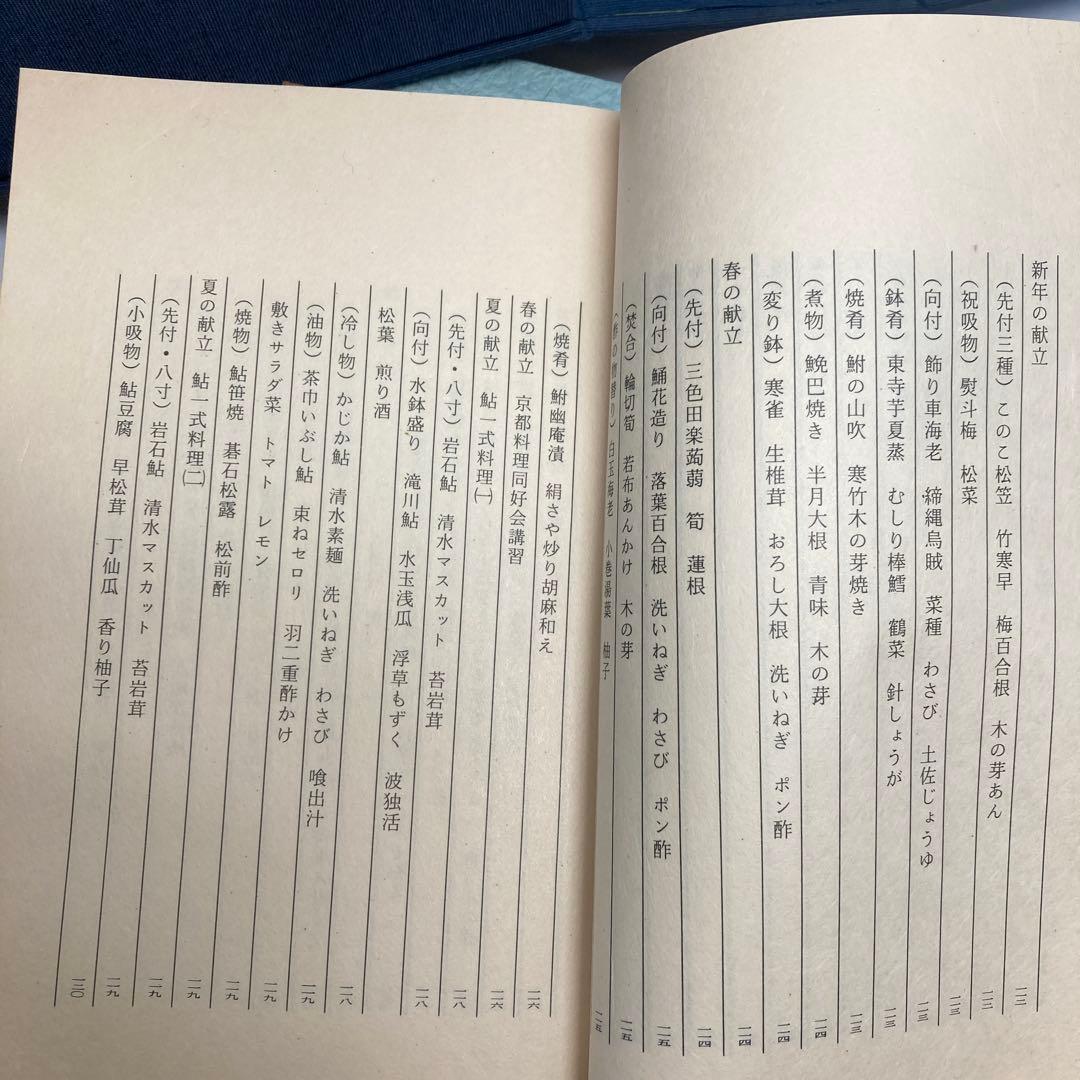 新年の献立 二三
(先付三種) このこ松笠 竹寒早 梅百合根 木の芽あん 二三
(祝吸物) 熨斗梅 松菜 二三
(向付) 飾り車海老 締縄烏賊 菜種 わさび 土佐じょうゆ 二三
(鉢肴) 東寺芋夏蒸 むしり棒鱈 鶴菜 針しょうが 二三
(焼肴) 鮒の山吹 寒竹木の芽焼き 二三
(煮物) 鮸巴焼き 半月大根 青味 木の芽 二四
(変り鉢) 寒雀 生椎茸 おろし大根 洗いねぎ ポン酢 二四
春の献立 二四
(先付) 三色田楽蒟蒻 筍 蓮根 二四
(向付) 鯒花造り 落葉百合根 洗いねぎ わさび ポン酢 二五
(焚合) 輪切筍 若布あんかけ 木の芽 二五
(酢の物替り) 白玉海老 小巻湯葉 柚子 二五
(焼肴) 鮒幽庵漬 絹さや炒り胡麻和え
春の献立 京都料理同好会講習 二六
夏の献立 鮎一式料理(一) 二六
(先付・八寸) 岩石鮎 清水マスカット 苔岩茸 二八
(向付) 水鉢盛り 滝川鮎 水玉浅瓜 浮草もずく 波独活 二八
松葉 煎り酒
(冷し物) かじか鮎 清水素麺 洗いねぎ わさび 喰出汁 二八
(油物) 茶巾いぶし鮎 束ねセロリ 羽二重酢かけ 二九
敷きサラダ菜 トマト レモン 二九
(焼物) 鮎笹焼 碁石松露 松前酢 二九
夏の献立 鮎一式料理(二) 二九
(先付・八寸) 岩石鮎 清水マスカット 苔岩茸 二九
(小吸物) 鮎豆腐 早松茸 丁仙瓜 香り柚子 二九
三〇